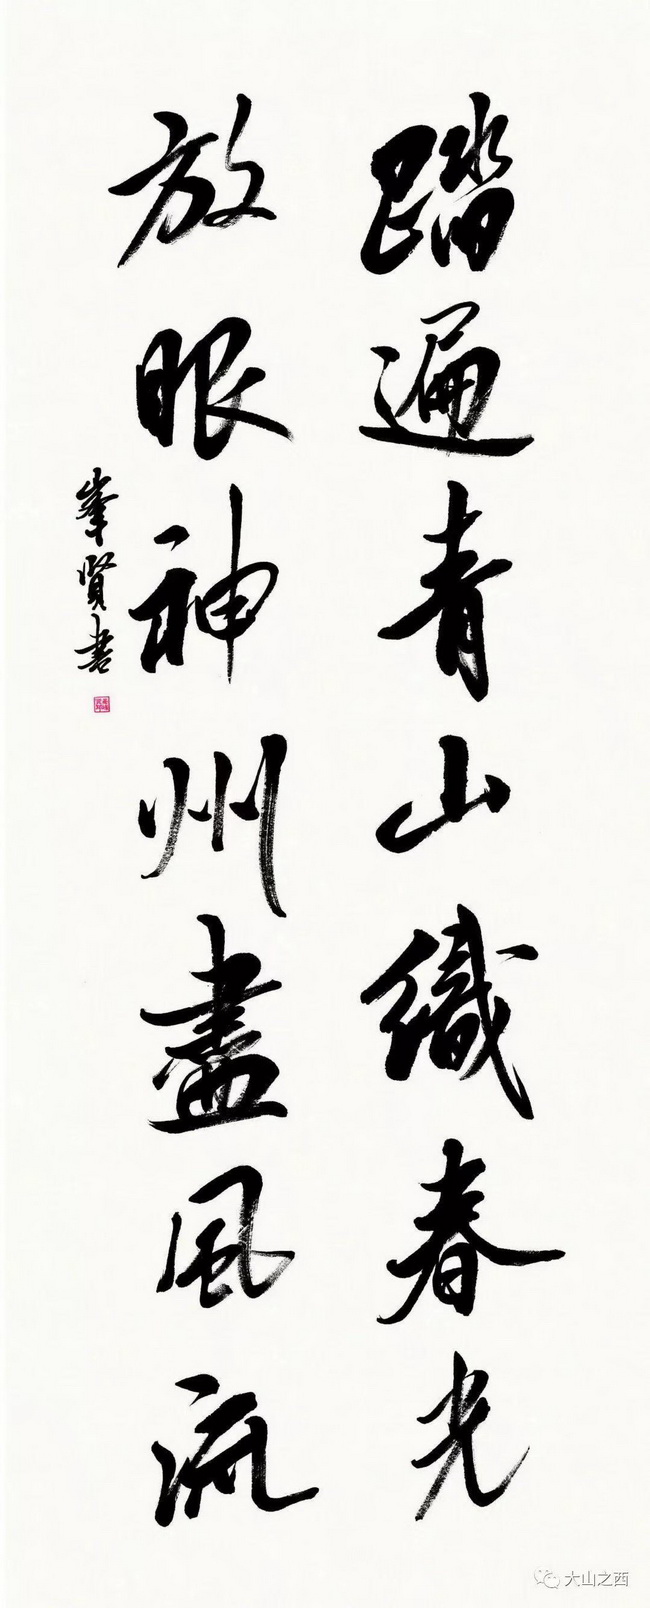 踏遍青山織春光
放眼神州盡風流
峯賢書
大山之西